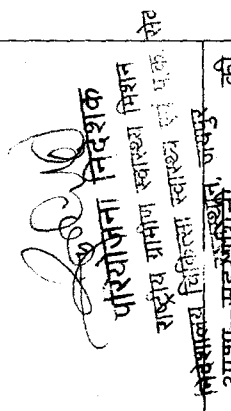 परियोजना निदेशक
राष्ट्रीय ग्रामीण स्वास्थ्य मिशन
निदेशालय चिकित्सा स्वास्थ्य एवं प.क. सेवाएं
जयपुर
आशा सहयोगिनी की